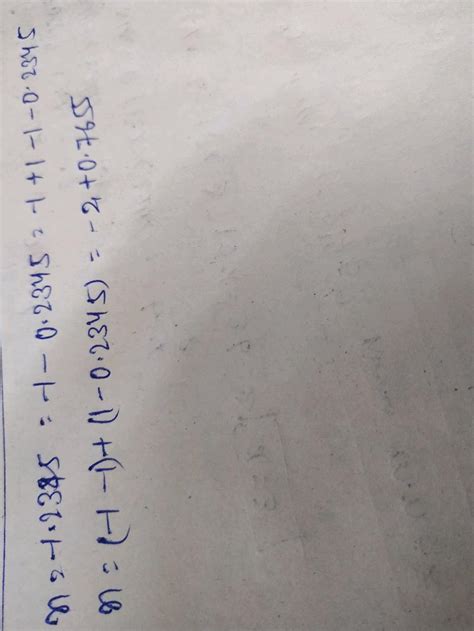 x = -1.2345 = -1 - 0.2345 = -1 + 1 - 1 - 0.2345
x = (-1 - 1) + (1 - 0.2345) = -2 + 0.765